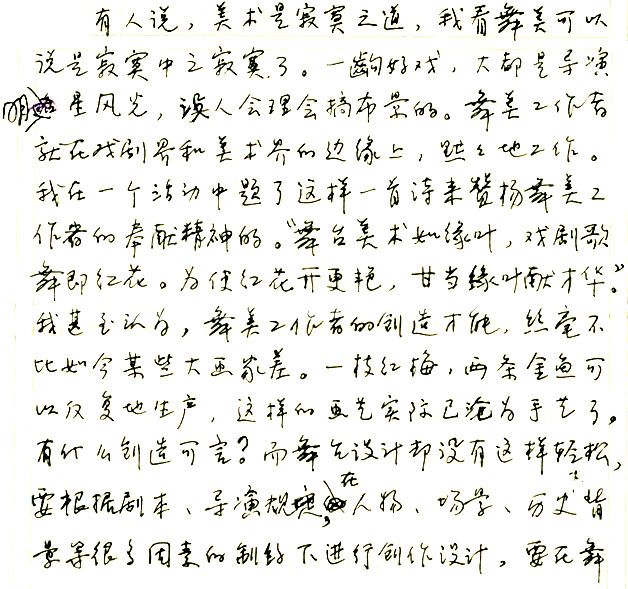 有人说，美术是寂寞之道，我看舞美可以
说是寂寞中之寂寞了。一齣好戏，大都是导演
明星风光，误人会理会搞布景的。舞美工作者
就在戏剧界和美术界的边缘上，默々地工作。
我在一个活动中题了这样一首诗来赞扬舞美工
作者的奉献精神的。“舞台美术如绿叶，戏剧歌
舞即红花。为使红花开更艳，甘当绿叶献才华。”
我甚至认为，舞美工作者的创造才能，丝毫不
比如今某些大画家差。一枝红梅，两条金鱼可
以反复地生产，这样的画艺实际已沦为手艺了，
有什么创造可言？而舞台设计却没有这样轻松，
要根据剧本、导演规定，在人物、场景、历史背
景等很多因素的制约下进行创作设计，要在舞